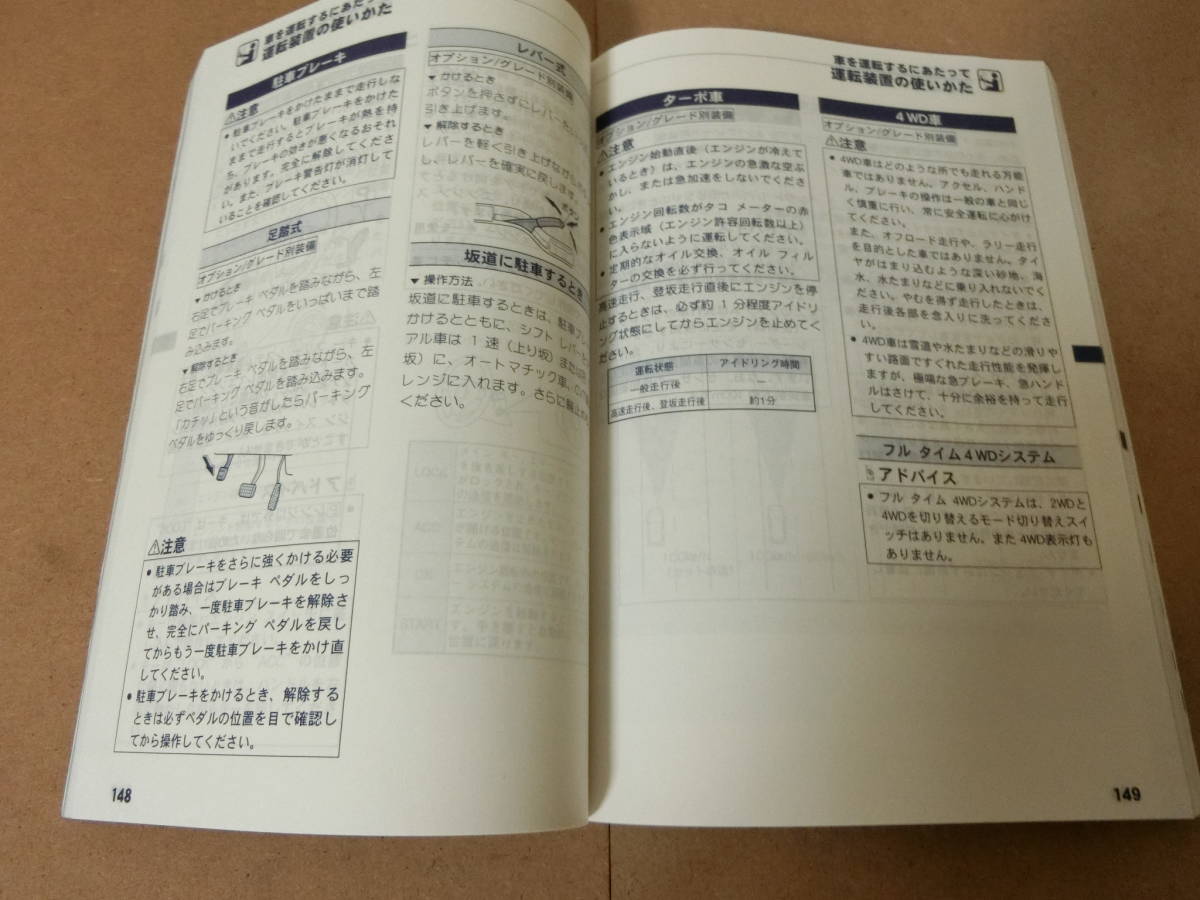 車を運転するにあたって
運転装置の使いかた
駐車ブレーキ
⚠注意
● 駐車ブレーキをかけたままで走行しな
いでください。駐車ブレーキをかけた
ままで走行するとブレーキが熱を持
ち、ブレーキの効きが悪くなるおそれ
があります。完全に解除してくださ
い。また、ブレーキ警告灯が消灯して
いることを確認してください。
足踏式
オプション/グレード別装備
▼ かけるとき
右足でブレーキ ペダルを踏みながら、左
足でパーキング ペダルをいっぱいまで踏
み込みます。
▼ 解除するとき
右足でブレーキ ペダルを踏みながら、左
足でパーキング ペダルを踏み込みます。
「カチッ」という音がしたらパーキング
ペダルをゆっくり戻します。
⚠注意
● 駐車ブレーキをさらに強くかける必要
がある場合はブレーキ ペダルをしっ
かり踏み、一度駐車ブレーキを解除さ
せ、完全にパーキング ペダルを戻し
てからもう一度駐車ブレーキをかけ直
してください。
● 駐車ブレーキをかけるとき、解除する
ときは必ずペダルの位置を目で確認し
てから操作してください。
148
レバー式
オプション/グレード別装備
▼ かけるとき
ボタンを押さずにレバーを
引き上げます。
▼ 解除するとき
レバーを軽く引き上げながら
し、レバーを確実に戻します。
ボタン
坂道に駐車するとき
▼ 操作方法
坂道に駐車するときは、駐車ブレ
かけるとともに、シフト レバーを
アル車は 1 速（上り坂）または
坂）に、オートマチック車、
レンジに入れます。さらに輪止め
ください。
ターボ車
オプション/グレード別装備
⚠注意
● エンジン始動直後（エンジンが冷えて
いるとき）は、エンジンの急激な空ぶ
かし、または急加速をしないでくださ
い。
● エンジン回転数がタコ メーターの赤
色表示域（エンジン許容回転数以上）
に入らないように運転してください。
● 定期的なオイル交換、オイル フィル
ターの交換を必ず行ってください。
高速走行、登坂走行直後にエンジンを停
止するときは、必ず約 1 分程度アイドリ
ング状態にしてからエンジンを止めてく
ださい。
運転状態 アイドリング時間
一般走行後 ―
高速走行後、登坂走行後 約1分
車を運転するにあたって
運転装置の使いかた
4 WD車
オプション/グレード別装備
⚠注意
● 4WD車はどのような所でも走れる万能
車ではありません。アクセル、ハンド
ル、ブレーキの操作は一般の車と同じ
く慎重に行い、常に安全運転に心がけ
てください。
また、オフロード走行や、ラリー走行
を目的とした車ではありません。タイ
ヤがはまり込むような深い砂地、海
水、水たまりなどに乗り入れないでく
ださい。やむを得ず走行したときは、
走行後各部を念入りに洗ってくださ
い。
● 4WD車は雪道や水たまりなどの滑りや
すい路面ですぐれた走行性能を発揮し
ますが、極端な急ブレーキ、急ハンド
ルはさけて、十分に余裕を持って走行
してください。
フル タイム 4 WDシステム
アドバイス
● フル タイム 4WDシステムは、2WDと
4WDを切り替えるモード切り替えスイ
ッチはありません。また 4WD表示灯も
ありません。
149